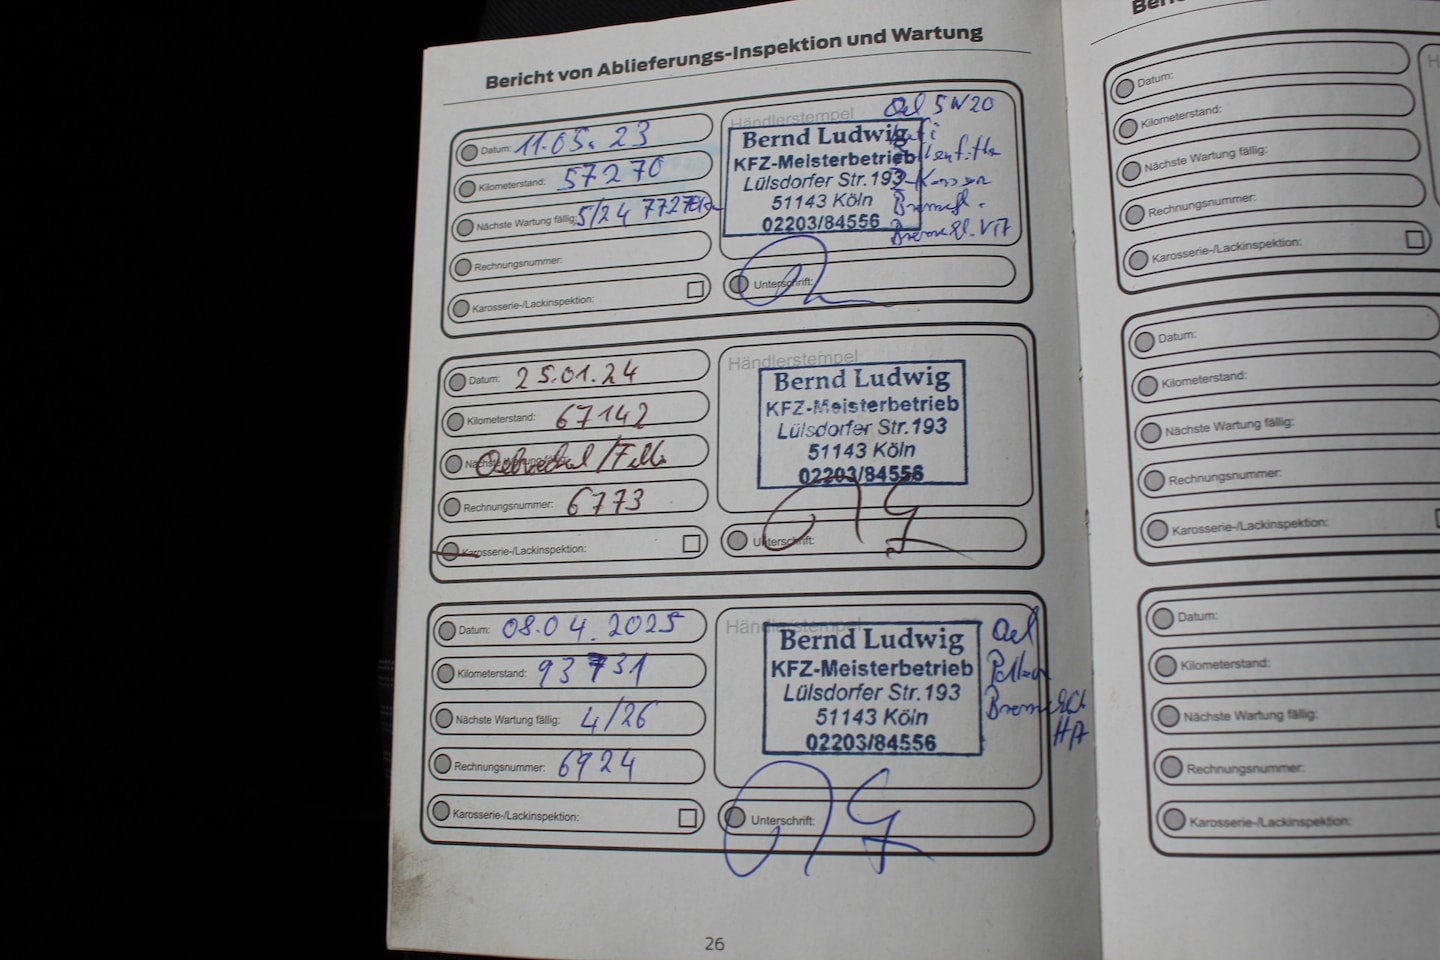 Bericht von Ablieferungs-Inspektion und Wartung
Datum: 11.05.23
Kilometerstand: 57270
Nächste Wartung fällig: 5/24
Rechnungsnummer:
Karosserie-/Lackinspektion:
Händlerstempel
Oel 5W20
Bernd Ludwig
KFZ-Meisterbetrieb
Lülsdorfer Str. 193
51143 Köln
02203/84556
Unterschrift:
Datum: 25.01.24
Kilometerstand: 67142
Nächste Wartung fällig:
Rechnungsnummer: 6773
Karosserie-/Lackinspektion:
Händlerstempel
Bernd Ludwig
KFZ-Meisterbetrieb
Lülsdorfer Str. 193
51143 Köln
02203/84556
Unterschrift:
Datum: 08.04.2025
Kilometerstand: 93731
Nächste Wartung fällig: 4/26
Rechnungsnummer: 6924
Karosserie-/Lackinspektion:
Händlerstempel
Bernd Ludwig
KFZ-Meisterbetrieb
Lülsdorfer Str. 193
51143 Köln
02203/84556
Oel
HA
Unterschrift:
26
Datum:
Kilometerstand:
Nächste Wartung fällig:
Rechnungsnummer:
Karosserie-/Lackinspektion:
Datum:
Kilometerstand:
Nächste Wartung fällig:
Rechnungsnummer:
Karosserie-/Lackinspektion:
Datum:
Kilometerstand:
Nächste Wartung fällig:
Rechnungsnummer:
Karosserie-/Lackinspektion: